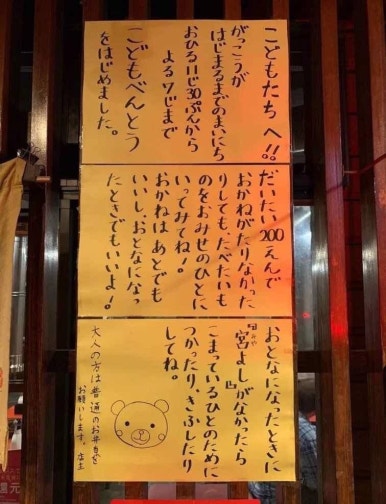 こどもたちへ!!
がっこうが
はじまるまでのまいにち
おひる11じ30ぷんから
よる7じまで
こどもべんとう
をはじめました。
だいたい200えんで
おかねがたりなかった
りしても、たべたいも
のをおみせのひとに
いってみてね!。
おかねは あとでも
いいし、おとなになっ
たときでもいいよ!
おとなになったときに
宮よしがなかったら
みや
こまっているひとのために
つかったり、きふしたり
してね。
大人の方は普通のお弁当を
お願いします。店主
還元